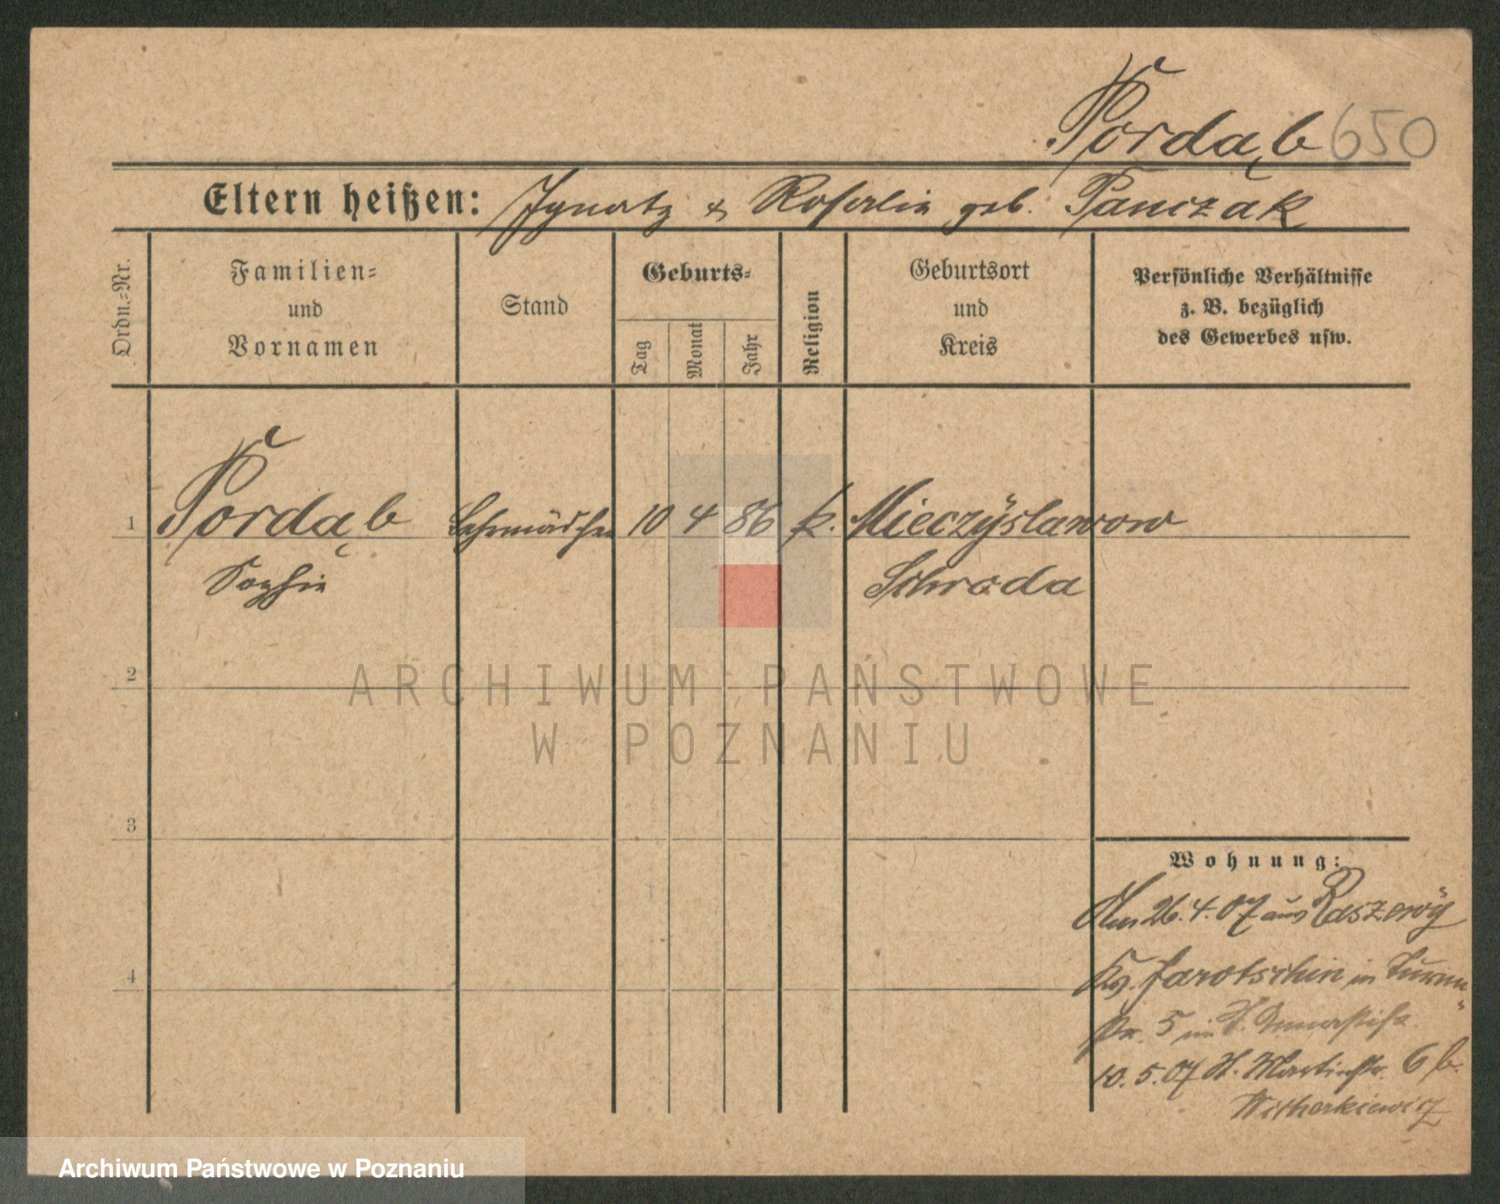 Pordąb 650
Eltern heißen: Ignatz & Rosalie geb. Pańczak
Ordn.-Nr.
Familien- und Vornamen
Stand
Geburts-
Tag
Monat
Jahr
Religion
Geburtsort und Kreis
Persönliche Verhältnisse z. B. bezüglich des Gewerbes usw.
1 Pordąb Lehrmädchen 10 4 86 k. Mieczÿslawowo
Sophie Schroda
2
3
4
Wohnung:
Am 26.4.07 aus Raszewÿ
Kr. Jarotschin in Turm-
str. 5 im St.
10.5.07 St. Martinstr. 6 b.
ARCHIWUM PAŃSTWOWE
W POZNANIU
Archiwum Państwowe w Poznaniu